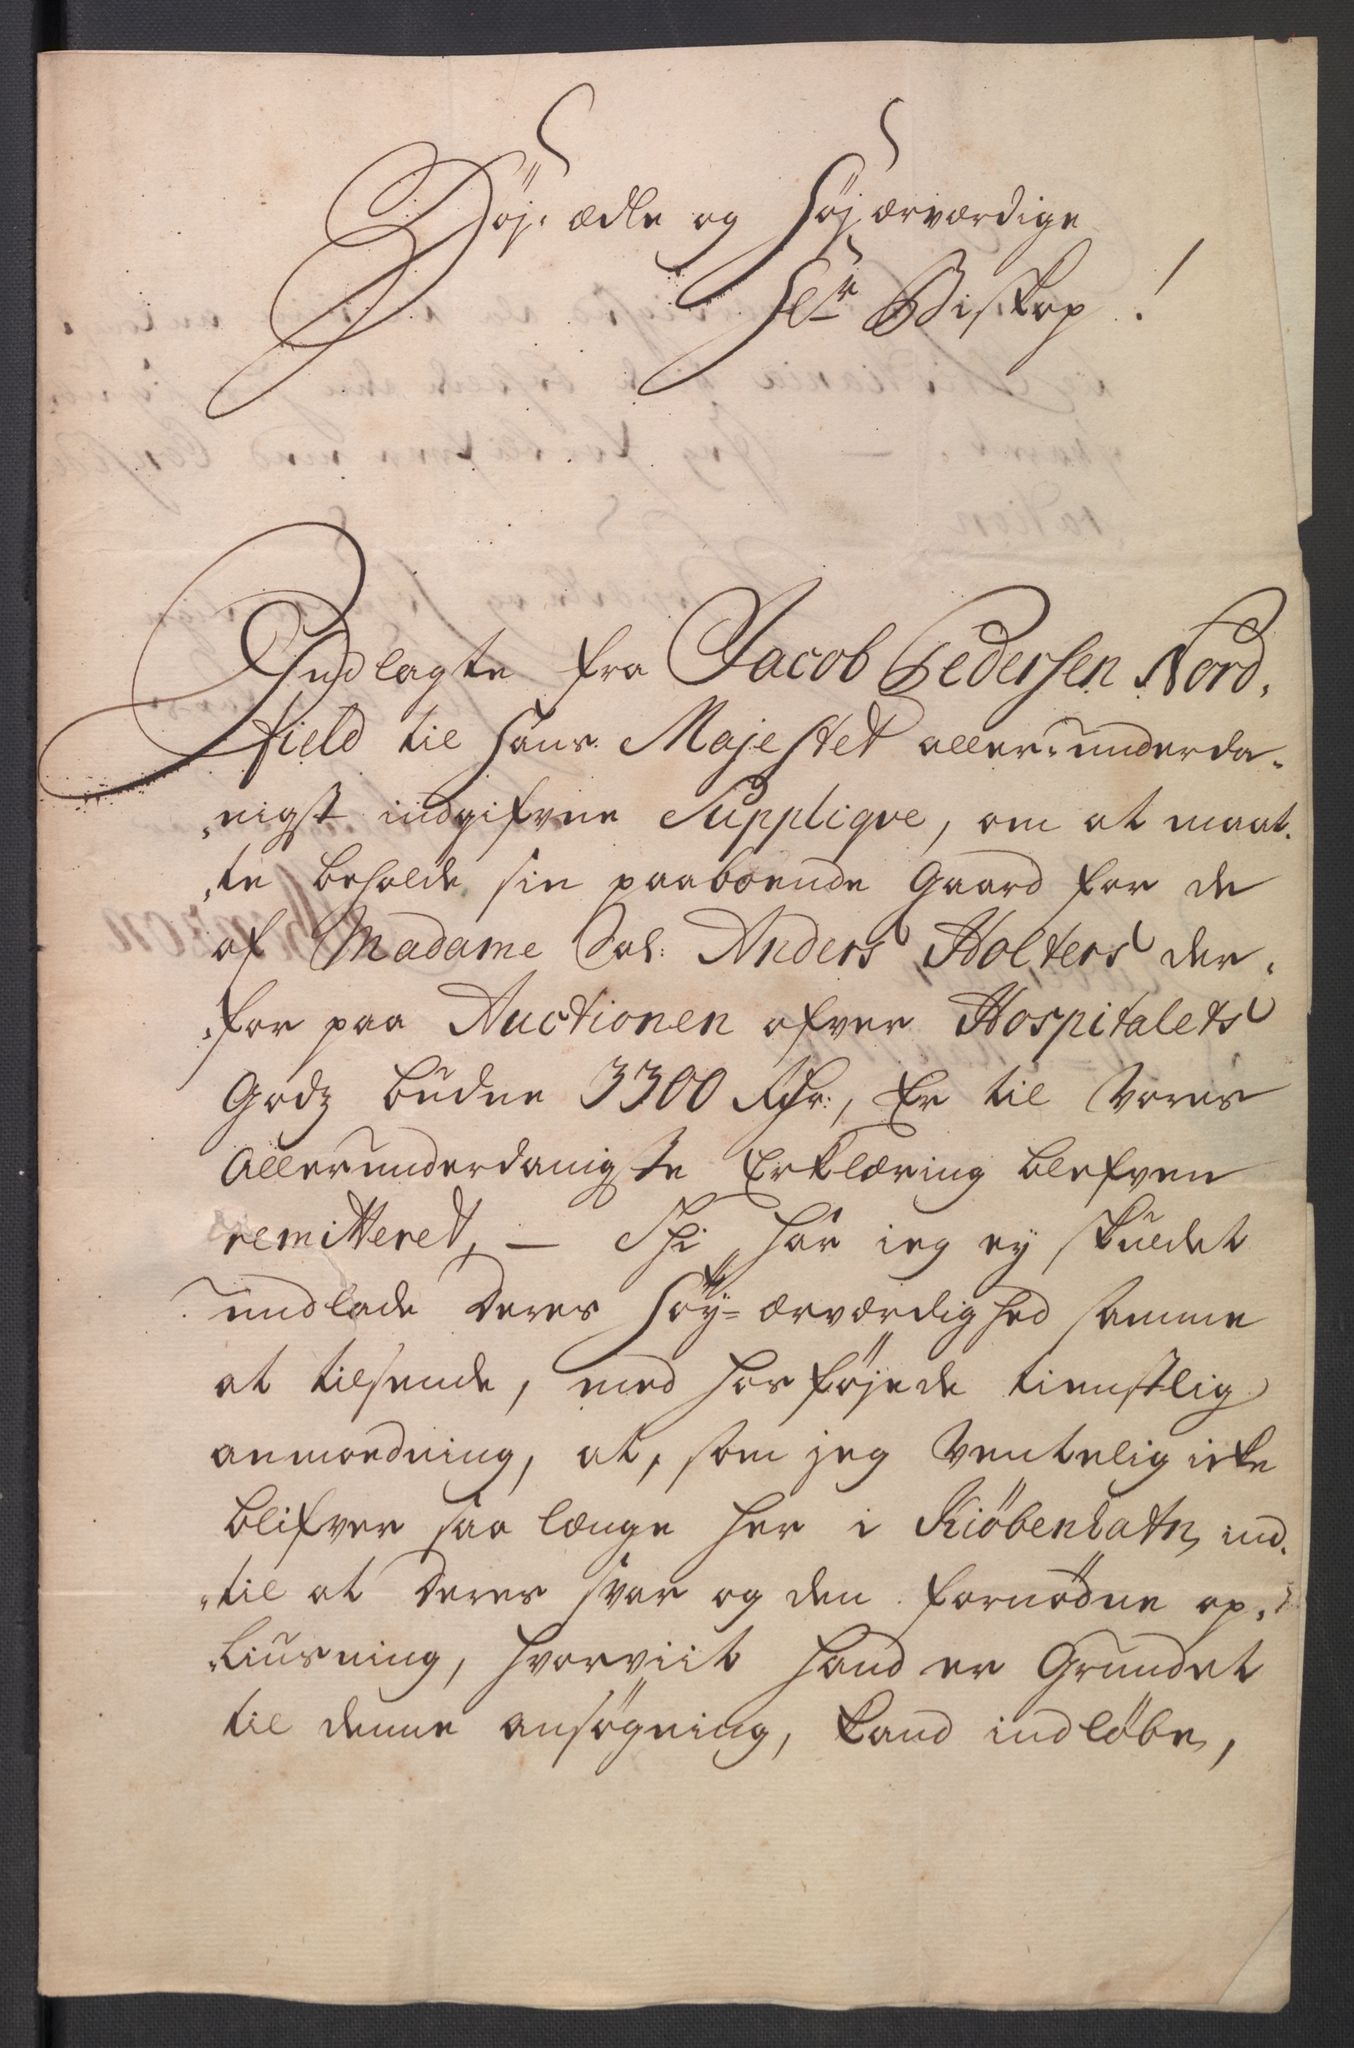 Høj-ædle og Højærværdige
Hr Biskop!
Indlagte fra Jacob Pedersen Nord-
field til Hans Majestet aller-underda-
-nigst indgifvne Supplique, om at maat-
-te beholde sin paaboende Gaard for de
af Madame Sal: Anders Holters der-
-for paa Auctionen ofver Hospitalets
Godz budne 3300 Rdr:, Er til Vores
allerunderdanigste Erklæring blefven
remitteret, — Thi har ieg ey skuldet
undlade Deres Høy-ærværdighed samme
at tilsende, med hosføjede tienstlig
anmodning, at, som jeg Ventelig icke
blifver saa længe her i Kiøbenhafn, ind-
-til at Deres svar og den fornødne op-
-liusning, hvorviit hand er Grundet
til denne ansøgning, kand indløbe,